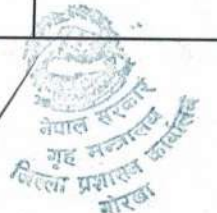 नेपाल सरकार
गृह मन्त्रालय
जिल्ला प्रशासन कार्यालय
गोरखा